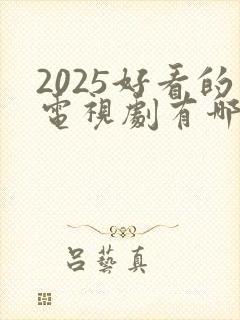 2025好看的
電視劇有哪
呂藝真